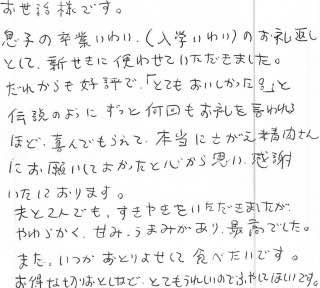 お世話様です。
息子の卒業いわい、(入学いわい)のお礼返し
として、新せきに使わせていただきました。
だれからも好評で、「とてもおいしかった?」と
伝説のようにずっと何回もお礼を言われる
ほど、喜んでもらえて、本当にさがえ精肉さん
にお願いしてよかったと心から思い、感謝
いたしております。
夫と2人でも、すきやきをいただきましたが
やわらかく、甘み、うまみがあり、最高でした。
また、いつかお とりよせして 食べたいです。
お得な切りおとしなど、とてもうれしいのでふやしてほしいです。